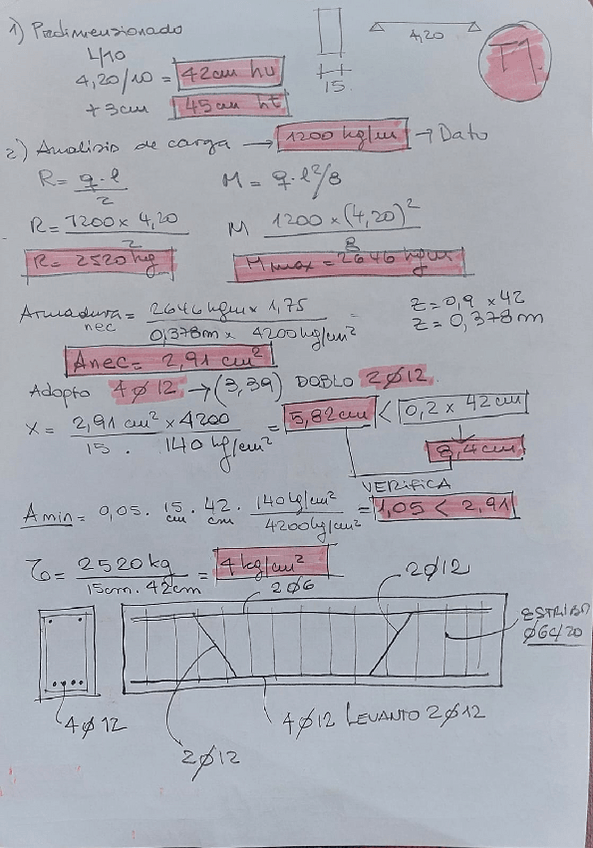 1) Predimensionado
L/10
4,20/10 = 42cm hu
+3cm 45cm ht
15.
4,20
T1.
2) Analisis de carga → 1200 kg/m → Dato
R = q.l / 2 M = q.l²/8
R = 1200 x 4,20 / 2 M 1200 x (4,20)² / 8
R = 2520 kg M max = 2646 kgm
Armadura nec = 2646 kgm x 1,75 / 0,378m x 4200kg/cm² = Z = 0,9 x 42
Z = 0,378m
Anec = 2,91 cm²
Adopto 4Ø12 → (3,39) DOBLO 2Ø12.
X = 2,91 cm² x 4200 / 15 . 140 kg/cm² = 5,82cm < 0,2 x 42cm
8,4cm
VERIFICA
A min = 0,05 . 15 cm . 42 cm . 140kg/cm² / 4200kg/cm² = 1,05 < 2,91
τo = 2520 kg / 15cm . 42cm = 4 kg/cm²
2Ø6
2Ø12
ESTRIBO
Ø6C/20
4Ø12
4Ø12 LEVANTO 2Ø12
2Ø12